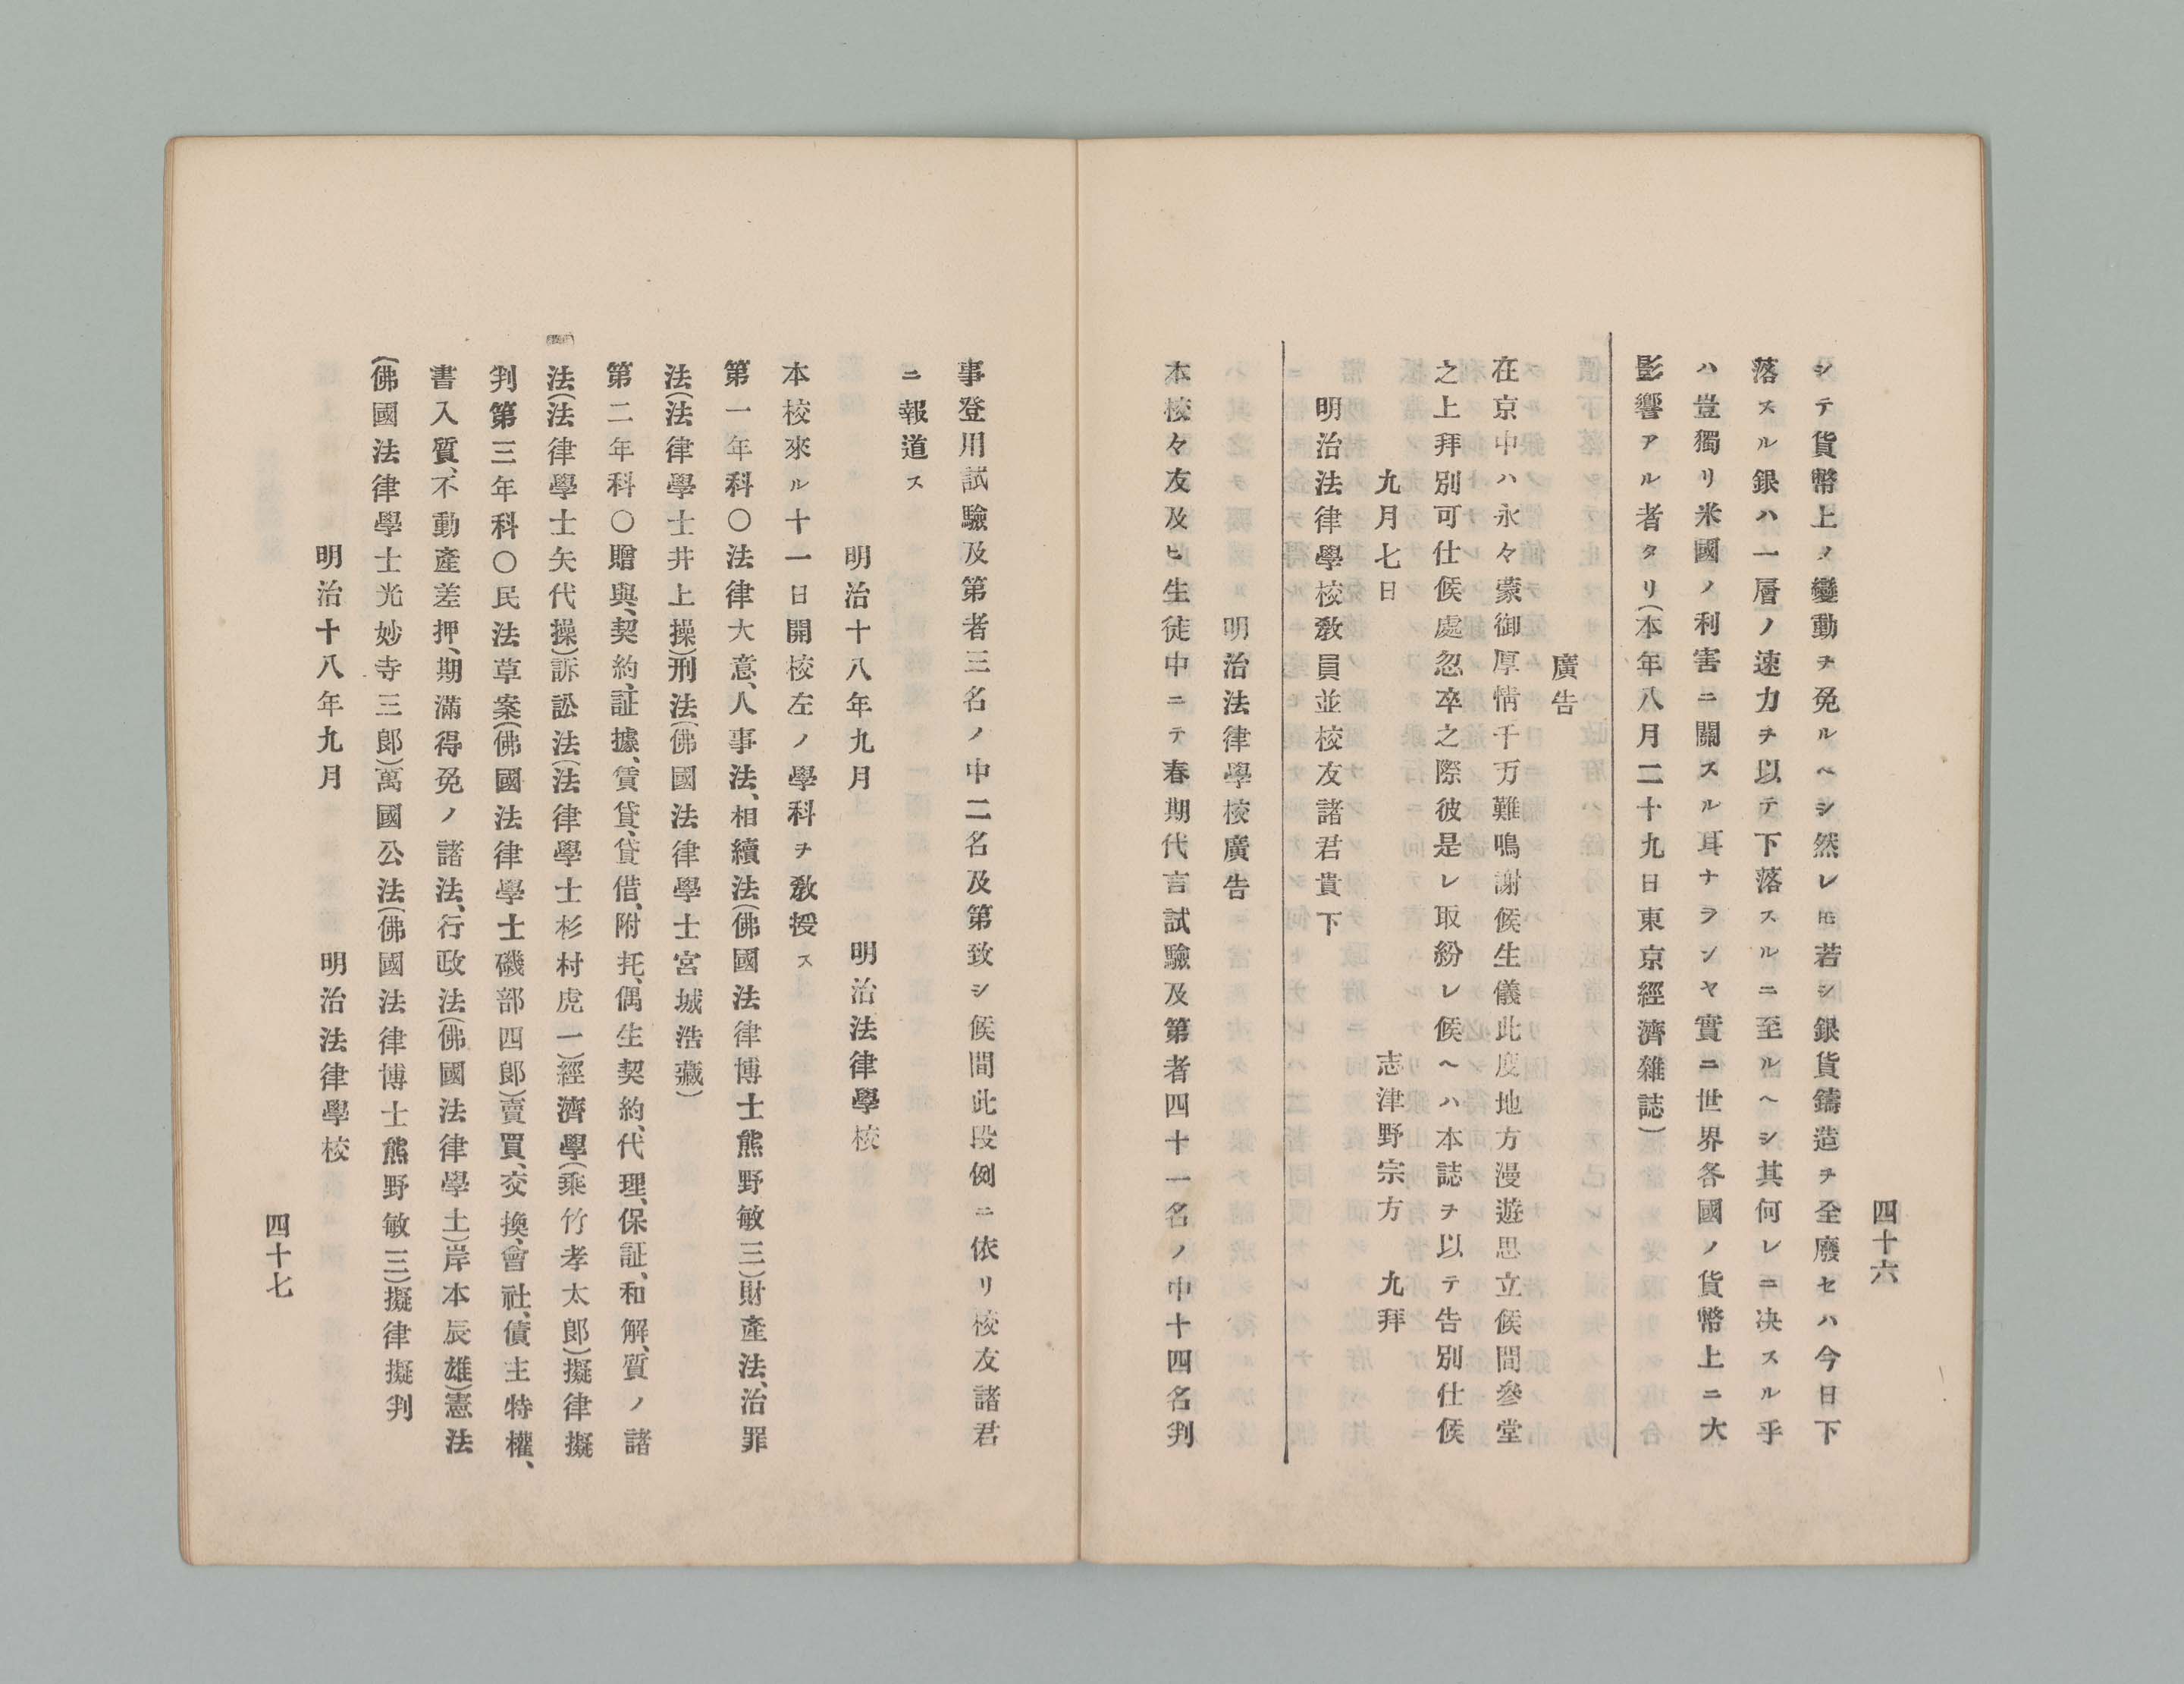 四十六
シテ貨幣上ノ變動ヲ免ルヘシ然レ𪜈若シ銀貨鑄造ヲ至廢セハ今日下
落スル銀ハ一層ノ速力ヲ以テ下落スルニ至ルヘシ其何レニ决スル乎
ハ豈獨リ米國ノ利害ニ關スル耳ナランヤ實ニ世界各國ノ貨幣上ニ大
影響アル者タリ(本年八月二十九日東京經濟雜誌)
廣告
在京中ハ永々蒙御厚情千万難鳴謝候生儀此度地方漫遊思立候間參堂
之上拜別可仕候處忽卒之際彼是レ取紛レ候ヘハ本誌ヲ以テ告別仕候
九月七日 志津野宗方 九拜
明治法律學校敎員並校友諸君貴下
明治法律學校廣告
本校々友及ヒ生徒中ニテ春期代言試驗及第者四十一名ノ中十四名判
事登用試驗及第者三名ノ中二名及第致シ候間此段例ニ依リ校友諸君
ニ報道ス
明治十八年九月 明治法律學校
本校來ル十一日開校左ノ學科ヲ敎授ス
第一年科〇法律大意、人事法、相續法(佛國法律博士熊野敏三)財產法、治罪
法(法律學士井上操)刑法(佛國法律學士宮城浩藏)
第二年科〇贈與、契約、証據、賃貸、貸借、附托、偶生契約、代理、保証、和解、質ノ諸
法(法律學士矢代操)訴訟法(法律學士杉村虎一)經濟學(乘竹孝太郎)擬律擬
判第三年科〇民法草案(佛國法律學士磯部四郎)賣買、交換、會社、債主特權、
書入質、不動產差押、期滿得免ノ諸法、行政法(佛國法律學士)岸本辰雄)憲法
(佛國法律學士光妙寺三郎)萬國公法(佛國法律博士熊野敏三)擬律擬判
明治十八年九月 明治法律學校
四十七